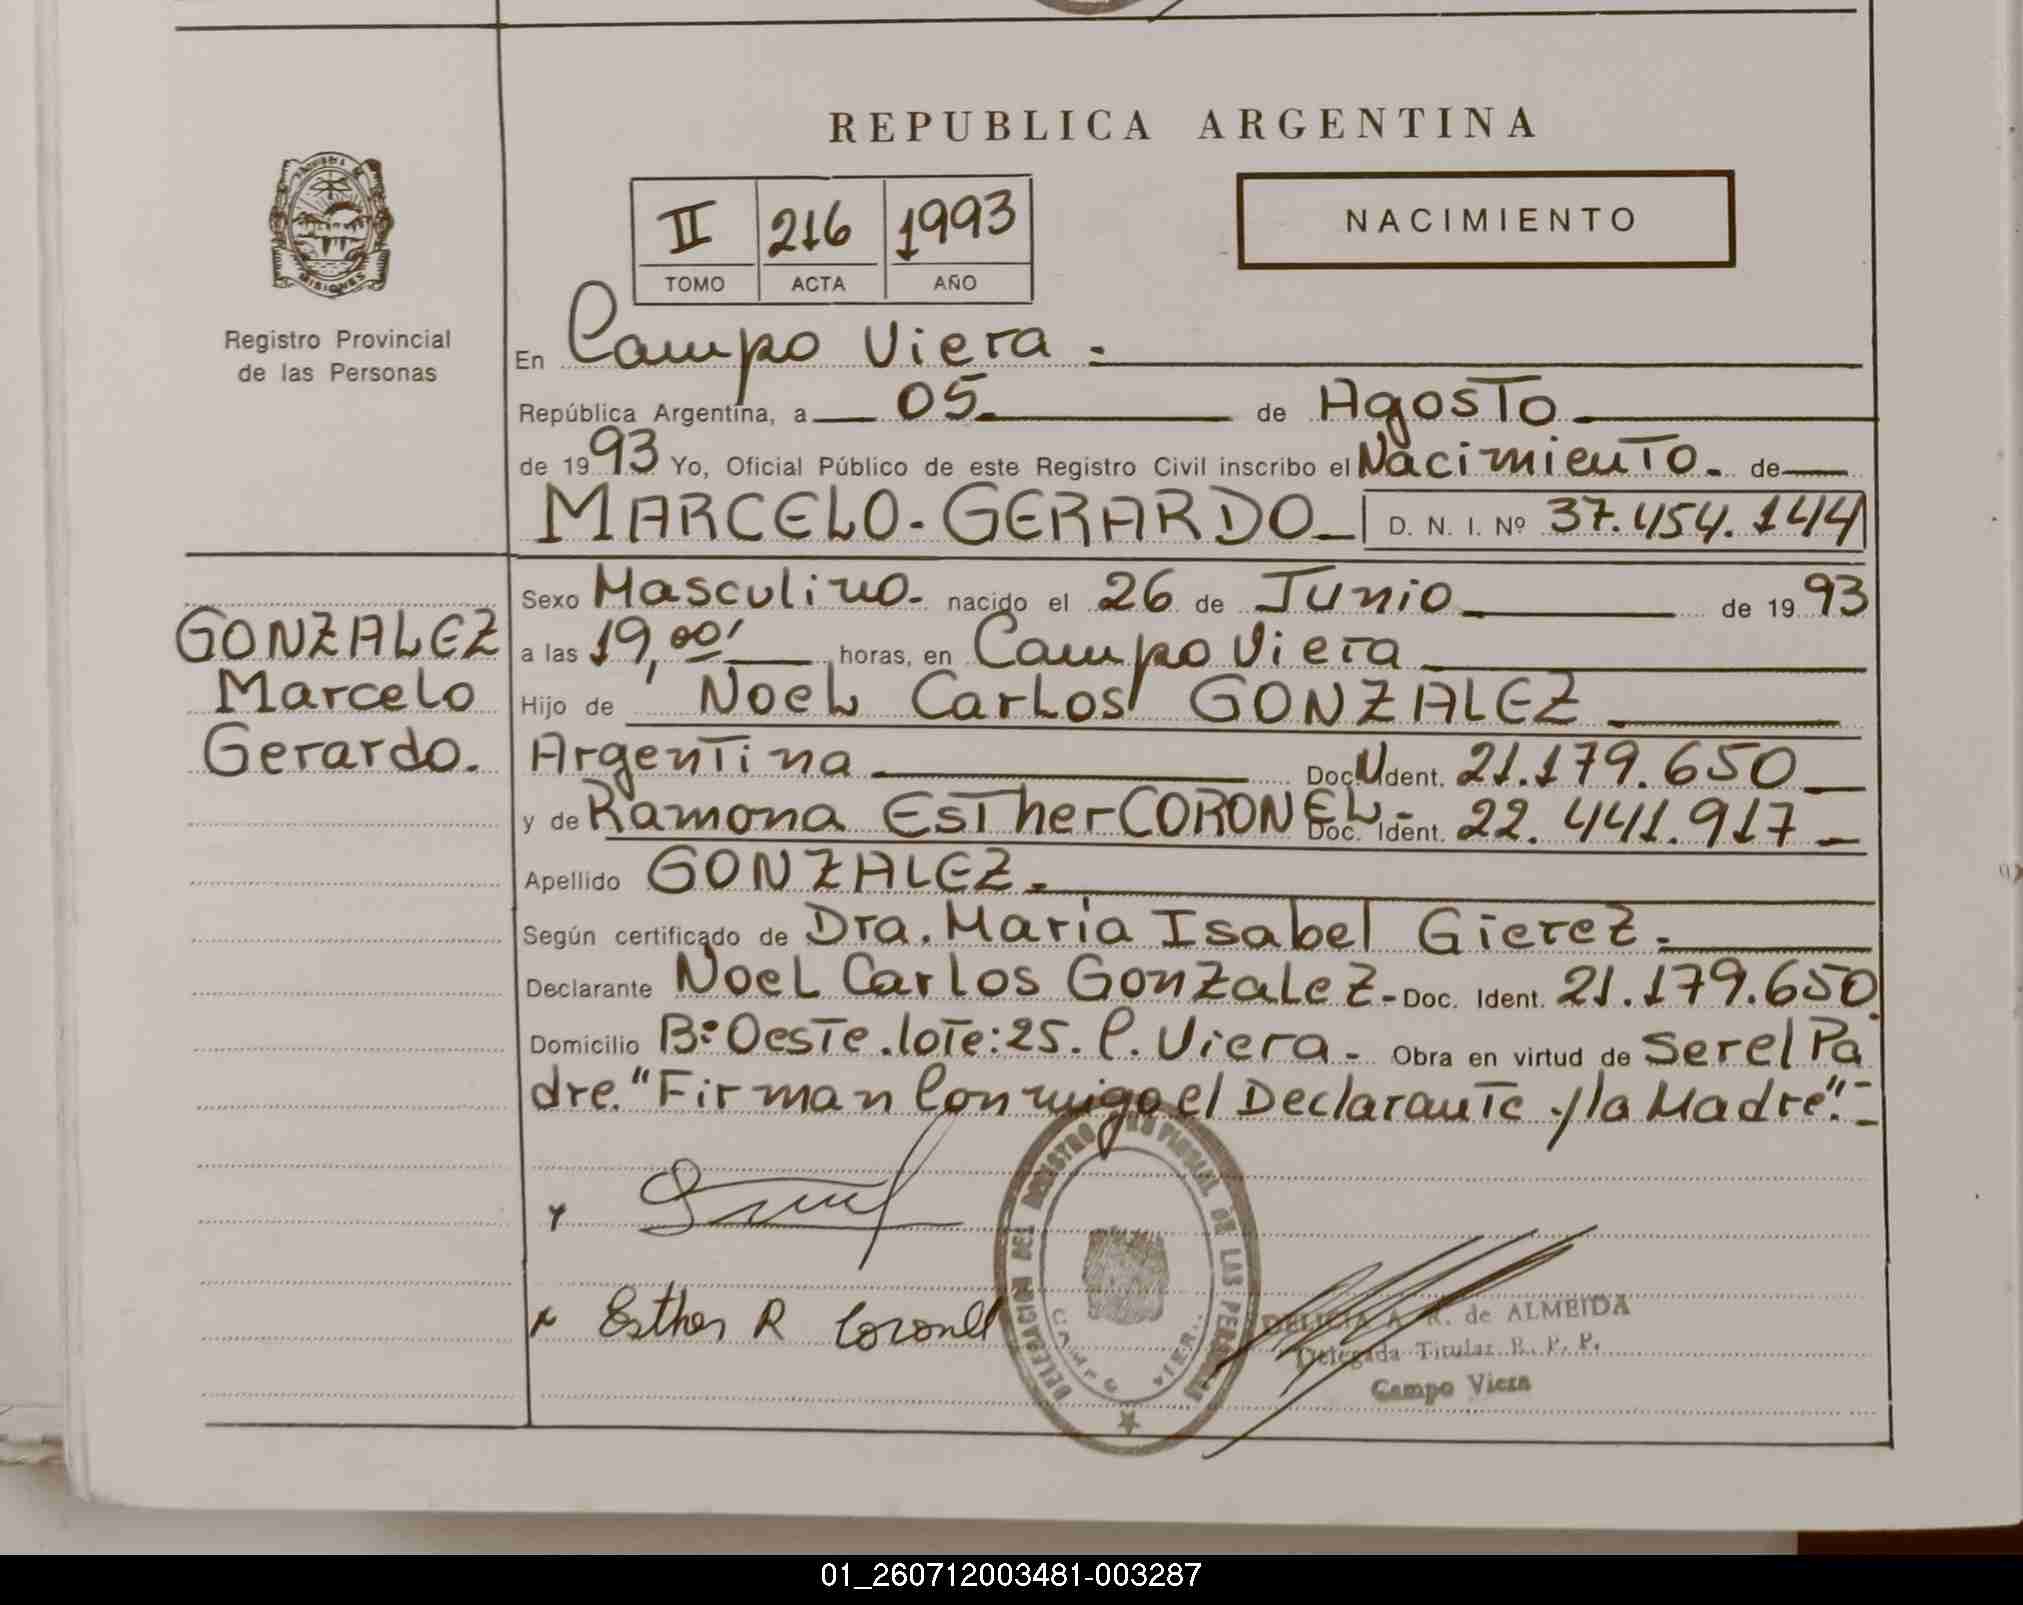 REPUBLICA ARGENTINA
II 216 1993
TOMO ACTA AÑO
NACIMIENTO
PROVINCIA DE MISIONES
Registro Provincial
de las Personas
En Campo Viera.-
República Argentina, a 05 de Agosto
de 1993 Yo, Oficial Público de este Registro Civil inscribo el Nacimiento. de
MARCELO.GERARDO D. N. I. Nº 37.454.144
GONZALEZ
Marcelo
Gerardo.
Sexo Masculino. nacido el 26 de Junio de 1993
a las 19,00' horas, en Campo Viera
Hijo de Noel Carlos GONZALEZ
Argentina Doc. Ident. 21.179.650
y de Ramona Esther CORONEL- Doc. Ident. 22.441.917
Apellido GONZALEZ.
Según certificado de Dra. Maria Isabel Gierez.
Declarante Noel Carlos Gonzalez- Doc. Ident. 21.179.650.
Domicilio Bº Oeste.lote:25. C. Viera. Obra en virtud de Ser el Pa
dre. "Firman Conmigo el Declarante y la Madre".-
Esther R Coronel
DELEGACION DEL REGISTRO PROVINCIAL DE LAS PERSONAS
CAMPO VIERA
DELICIA A. R. de ALMEIDA
Delegada Titular R. P. P.
Campo Viera
01_260712003481-003287